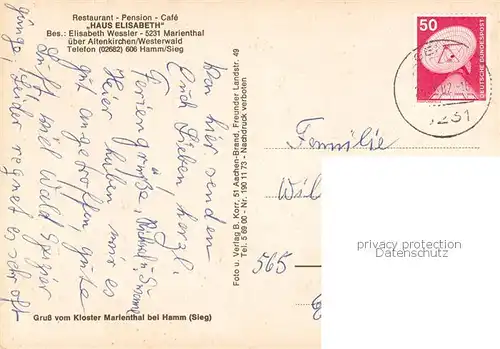 Restaurant - Pension - Café
„HAUS ELISABETH“
Bes.: Elisabeth Wessler - 5231 Marienthal
über Altenkirchen/Westerwald
Telefon (02682) 606 Hamm/Sieg
Von hier senden
Euch Lieben herzl.
Feriengrüße,
Hier haben wir es
gut angetroffen, gute
Luft viel Wald
Leider regnet es oft
Gruß vom Kloster Marienthal bei Hamm (Sieg)
Foto u. Verlag B. Korr, 51 Aachen-Brand, Freunder Landstr. 49
Tel. 5 69 00 - Nr. 190 11 73 - Nachdruck verboten
50
DEUTSCHE BUNDESPOST
5231
Familie
565
privacy protection
Datenschutz